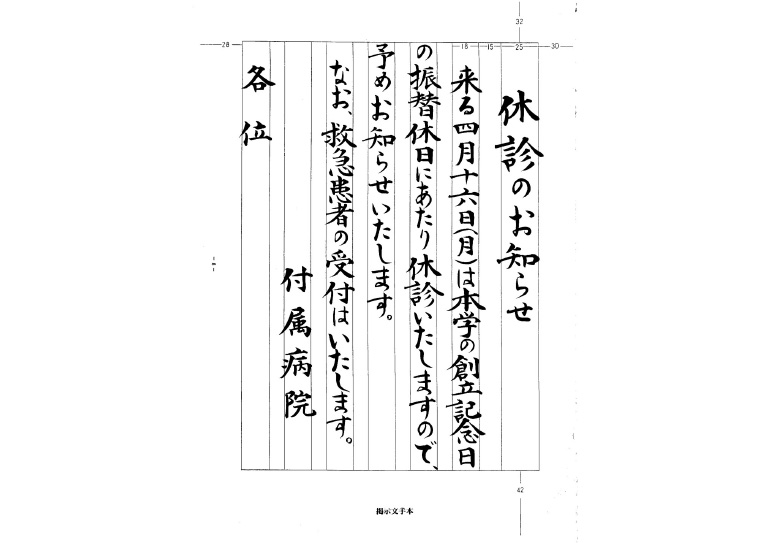 休診のお知らせ
来る四月十六日(月)は本学の創立記念日
の振替休日にあたり休診いたしますので、
予めお知らせいたします。
なお、救急患者の受付はいたします。
付属病院
各位
32
28
18
15
25
30
42
掲示文手本